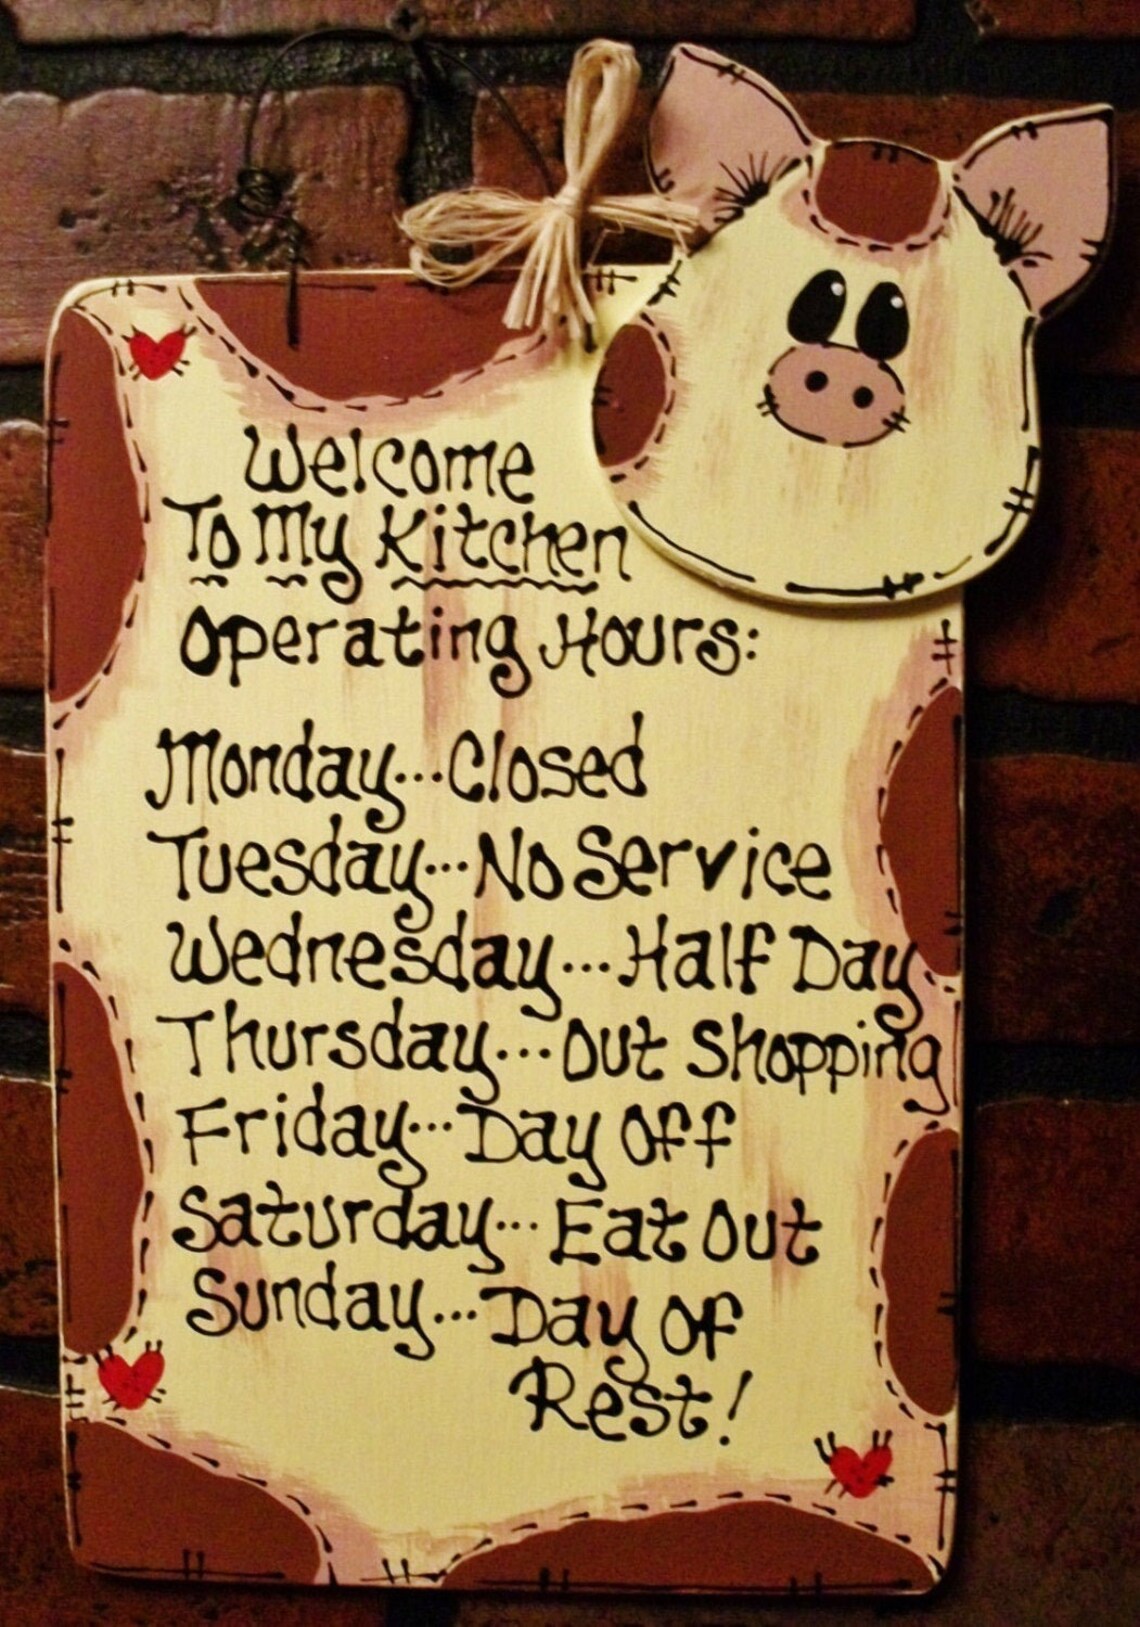 Welcome
To My Kitchen
Operating Hours:
Monday...Closed
Tuesday...No Service
Wednesday...Half Day
Thursday...Out Shopping
Friday...Day Off
Saturday...Eat Out
Sunday...Day of
Rest!